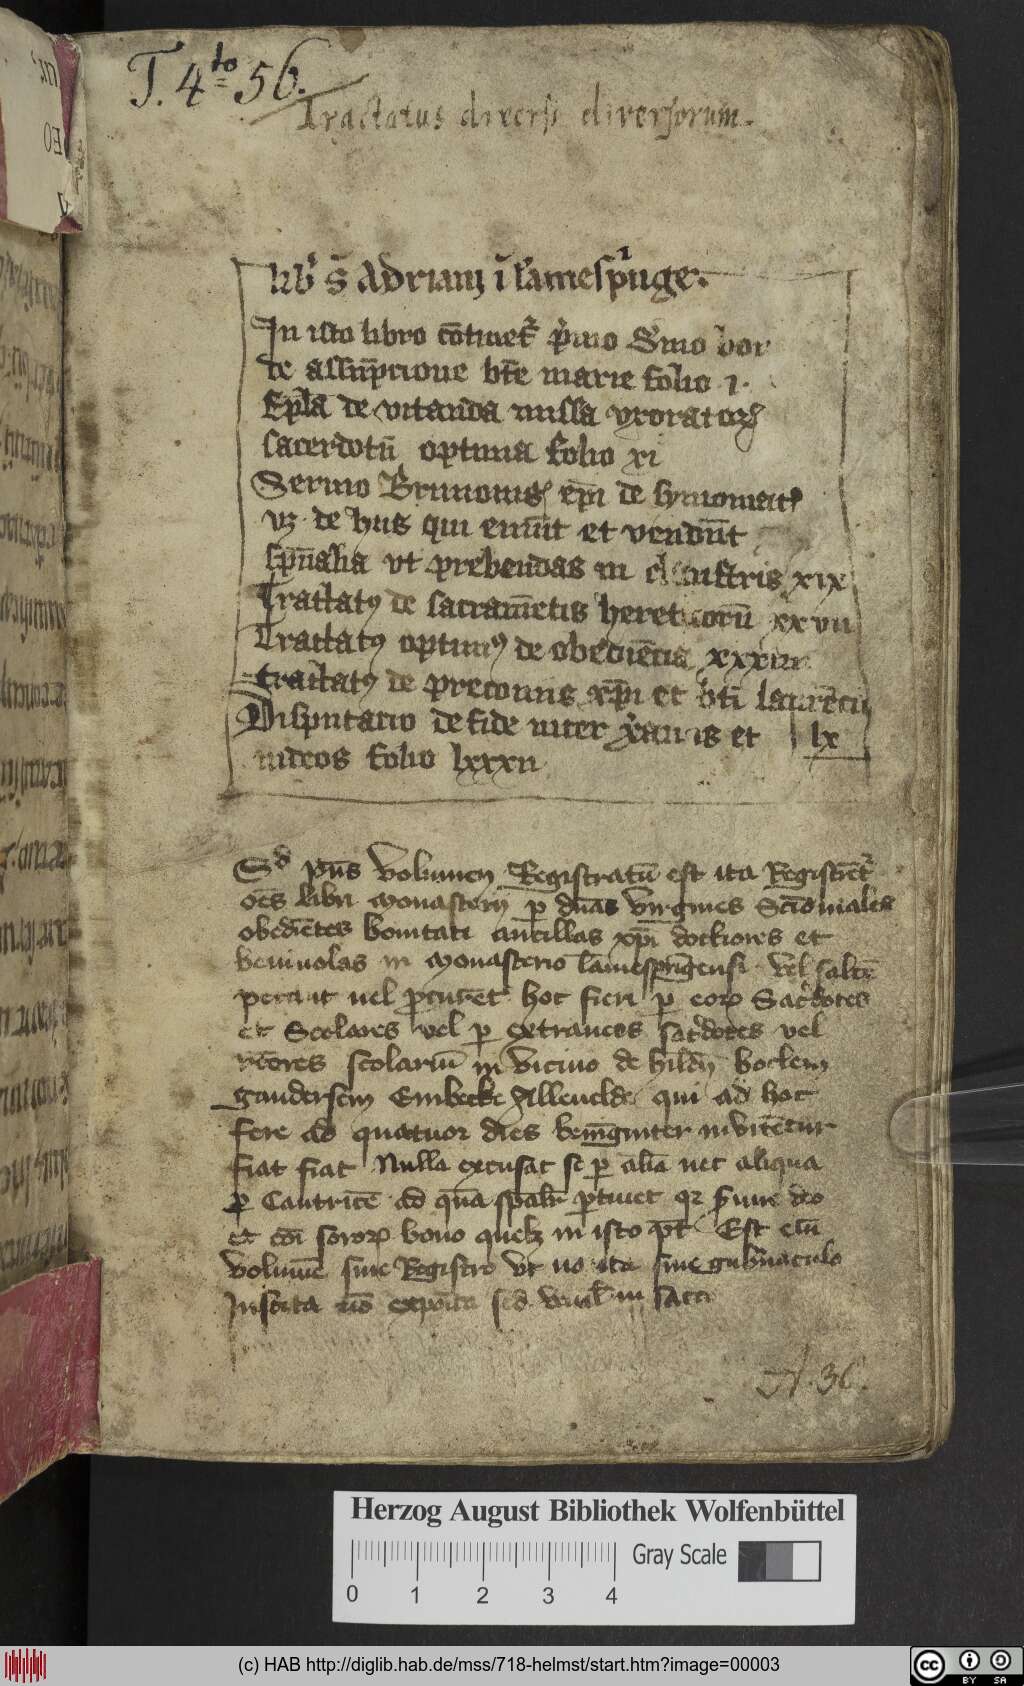 T. 4to 56.
Tractatus diversi diversorum.
lib' s̄ Adriani ī lāmespͥnge.
In isto libro cōtinet᷑ pͥmo Sͣmo bor
de assūpcione btē marie folio 1.
Epl̄a de vitanda missa vxoratorꝝ
sacerdotū optima folio xi
Sermo Brunonis epī de symoniacis
vꝫ de hiis qui emūt et vendūt
spūalia vt prebendas in claustris xix
Tractatꝯ de sacramētis hereticorū xxvii
Tractatꝯ optimꝯ de obediēcia xxxiiii
tractatꝯ de preconiis xp̄i et bti laurēcii
Disputacio de fide inter xͬanis et lx
iudeos folio lxxxii
Sͩ pn̄s volumen Registratū est ita Registrēt᷑
oēs libri monasterii ꝑ duas virgines Sctīoniales
obediētes bonitati ancillas xp̄i dociores et
beniuolas in monasterio lāmesprīgensi vel saltē
petant uel ꝓcurēt hoc fieri ꝑ eorꝝ Sacͬdotes
et Scolares vel ꝑ extraneos sacͬdotes vel
rc̄ores scolariū in vicino de hild̄ boclem
gandersem Embecke Alleuelde qui ad hoc
fere ad quatuor dies benīgniter invitētur
fiat fiat Nulla excusat se ꝑ aliā nec aliqua
ꝑ Cantricē ad quā spāl̄r ꝑtinet qꝛ sͬuire deo
et cōi sororꝝ bono quelꝫ in isto pt̄ Est eni̅
volumē sine Registro vt no ita sine gubͬnaculo
Inscita nō
sed in sacc
A. 36.
Herzog August Bibliothek Wolfenbüttel
Gray Scale
0 1 2 3 4
(c) HAB http://diglib.hab.de/mss/718-helmst/start.htm?image=00003
cc BY SA